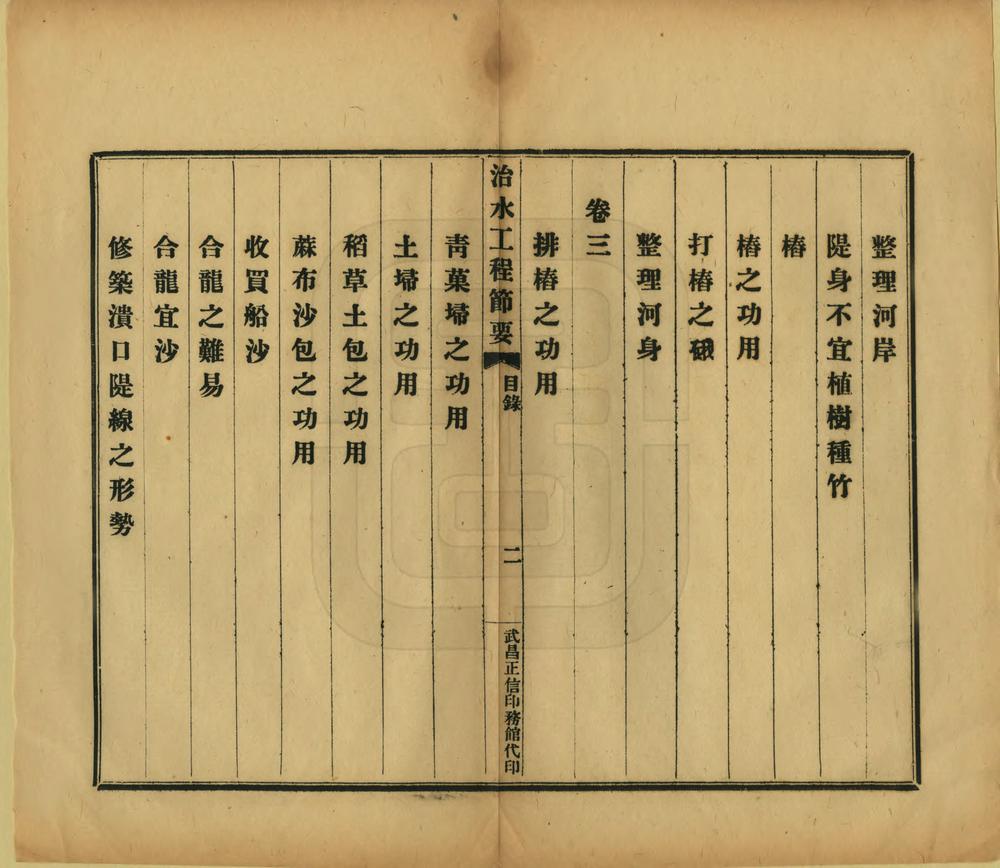 整理河岸
隄身不宜植樹種竹
樁
樁之功用
打樁之硪
整理河身
卷三
排樁之功用
治水工程節要
目錄
二
武昌正信印務館代印
青菓埽之功用
土埽之功用
稻草土包之功用
蔴布沙包之功用
收買船沙
合龍之難易
合龍宜沙
修築潰口隄線之形勢